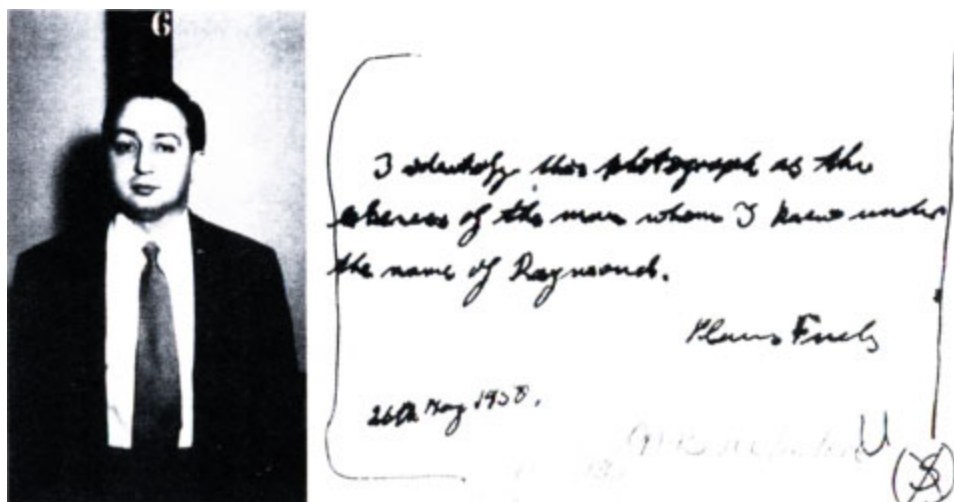 6
I identify this photograph as the
likeness of the man whom I knew under
the name of Raymond.
Klaus Fuchs
26th May 1950.
U
(S)